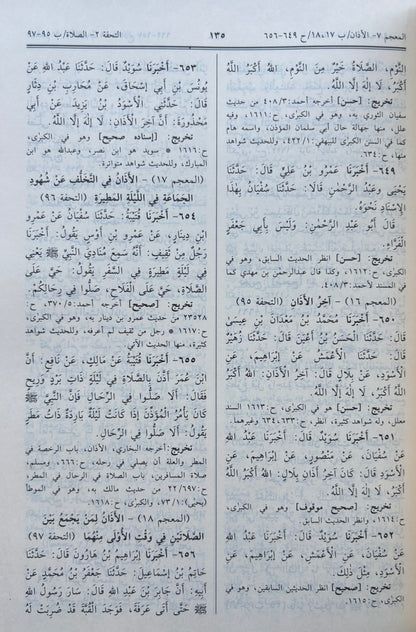 المعجم ٧- الأذان/ب ١٨،١٧/ح ٦٤٩-٦٥٦
١٣٥
التحفة ٢- الصلاة/ب ٩٥-٩٧
النَّوْمِ، الصَّلَاةُ خَيْرٌ مِنَ النَّوْمِ، اللهُ أَكْبَرُ اللهُ
أَكْبَرُ، لَا إِلٰهَ إِلَّا اللهُ.
تخريج: [حسن] أخرجه أحمد: ٤٠٨/٣ من حديث
سفيان الثوري به، وهو في الكبرى، ح:١٦١١ * فيه
علل، منها جهالة حال أبي سلمان المؤذن، واسمه همام
كما في السنن الكبرى للبيهقي: ٤٢٢/١، وللحديث شواهد
منها، ح:٦٣٤.
٦٤٩- أَخْبَرَنَا عَمْرُو بْنُ عَلِيٍّ قَالَ: حَدَّثَنَا
يَحْيَى وَعَبْدُ الرَّحْمٰنِ قَالَا: حَدَّثَنَا سُفْيَانُ بِهٰذَا
الْإِسْنَادِ نَحْوَهُ.
قَالَ أَبُو عَبْدِ الرَّحْمٰنِ: وَلَيْسَ بِأَبِي جَعْفَرٍ
الْفَرَّاءِ.
تخريج: [حسن] انظر الحديث السابق، وهو في
الكبرى، ح:١٦١٢، وكذا قال عبدالرحمن بن مهدي كما
في المسند لأحمد: ٤٠٨/٣.
(المعجم ١٦) - آخِرُ الْأَذَانِ (التحفة ٩٥)
٦٥٠- أَخْبَرَنَا مُحَمَّدُ بْنُ مَعْدَانَ بْنِ عِيسَى
قَالَ: حَدَّثَنَا الْحَسَنُ بْنُ أَعْيَنَ قَالَ: حَدَّثَنَا زُهَيْرٌ
قَالَ: حَدَّثَنَا الْأَعْمَشُ عَنْ إِبْرَاهِيمَ، عَنِ
الْأَسْوَدِ، عَنْ بِلَالٍ قَالَ: آخِرُ الْأَذَانِ: اللهُ أَكْبَرُ اللهُ
أَكْبَرُ، لَا إِلٰهَ إِلَّا اللهُ.
تخريج: [حسن] هو في الكبرى، ح:١٦١٣ السند
معلل، وله شواهد كثيرة، انظر، ح:٦٣٣،٦٣٤ وغيرهما.
٦٥١- أَخْبَرَنَا سُوَيْدٌ قَالَ: أَخْبَرَنَا عَبْدُ اللهِ
عَنْ سُفْيَانَ، عَنْ مَنْصُورٍ، عَنْ إِبْرَاهِيمَ، عَنِ
الْأَسْوَدِ قَالَ: كَانَ آخِرُ أَذَانِ بِلَالٍ: اللهُ أَكْبَرُ اللهُ
أَكْبَرُ، لَا إِلٰهَ إِلَّا اللهُ.
تخريج: [صحيح موقوف] وهو في الكبرى،
ح:١٦١٤، وانظر الحديث السابق.
أَخْبَرَنَا سُوَيْدٌ قَالَ: أَخْبَرَنَا عَبْدُ اللهِ
عَنْ سُفْيَانَ، عَنِ الْأَعْمَشِ، عَنْ إِبْرَاهِيمَ، عَنِ
الْأَسْوَدِ، مِثْلَ ذٰلِكَ.
تخريج: [صحيح] انظر الحديثين السابقين، وهو في
الكبرى، ح:١٦١٥.
٦٥٣- أَخْبَرَنَا سُوَيْدٌ قَالَ: حَدَّثَنَا عَبْدُ اللهِ عَنْ
يُونُسَ بْنِ أَبِي إِسْحَاقَ، عَنْ مُحَارِبِ بْنِ دِثَارٍ
قَالَ: حَدَّثَنِي الْأَسْوَدُ بْنُ يَزِيدَ عَنْ أَبِي
مَحْذُورَةَ: أَنَّ آخِرَ الْأَذَانِ: لَا إِلٰهَ إِلَّا اللهُ.
تخريج: [إسناده صحيح] وهو في الكبرى،
ح:١٦١٦ * سويد هو ابن نصر، وعبدالله هو ابن
المبارك، وللحديث شواهد متواترة.
(المعجم ١٧) - الْأَذَانُ فِي التَّخَلُّفِ عَنْ شُهُودِ
الْجَمَاعَةِ فِي اللَّيْلَةِ الْمَطِيرَةِ (التحفة ٩٦)
٦٥٤- أَخْبَرَنَا قُتَيْبَةُ: حَدَّثَنَا سُفْيَانُ عَنْ عَمْرِو
ابْنِ دِينَارٍ، عَنْ عَمْرِو بْنِ أَوْسٍ يَقُولُ: أَخْبَرَنَا
رَجُلٌ مِنْ ثَقِيفٍ: أَنَّهُ سَمِعَ مُنَادِيَ النَّبِيِّ ﷺ يَعْنِي
فِي لَيْلَةٍ مَطِيرَةٍ فِي السَّفَرِ يَقُولُ: حَيَّ عَلَى
الصَّلَاةِ، حَيَّ عَلَى الْفَلَاحِ، صَلُّوا فِي رِحَالِكُمْ.
تخريج: [صحيح] أخرجه أحمد: ٣٧٠/٥، ح:
٢٣٥٢٨ من حديث عمرو بن دينار به، وهو في الكبرى،
ح:١٦١٧ * رجل من ثقيف لم أعرفه، وللحديث شواهد
كثيرة، منها الحديث الآتي.
٦٥٥- أَخْبَرَنَا قُتَيْبَةُ عَنْ مَالِكٍ، عَنْ نَافِعٍ: أَنَّ
ابْنَ عُمَرَ أَذَّنَ بِالصَّلَاةِ فِي لَيْلَةٍ ذَاتِ بَرْدٍ وَرِيحٍ
فَقَالَ: أَلَا صَلُّوا فِي الرِّحَالِ، فَإِنَّ النَّبِيَّ ﷺ
كَانَ يَأْمُرُ الْمُؤَذِّنَ إِذَا كَانَتْ لَيْلَةٌ بَارِدَةٌ ذَاتُ مَطَرٍ
يَقُولُ: أَلَا صَلُّوا فِي الرِّحَالِ.
تخريج: أخرجه البخاري، الأذان، باب الرخصة في
المطر والعلة أن يصلي في رحله، ح:٦٦٦، ومسلم،
صلاة المسافرين، باب الصلاة في الرحال في المطر،
ح:٢٢/٦٩٧ من حديث مالك به، وهو في الموطأ
(يحيى): ٧٣/١، والكبرى، ح:١٦١٨.
(المعجم ١٨) - الْأَذَانُ لِمَنْ يَجْمَعُ بَيْنَ
الصَّلَاتَيْنِ فِي وَقْتِ الْأُولَى مِنْهُمَا (التحفة ٩٧)
٦٥٦- أَخْبَرَنَا إِبْرَاهِيمُ بْنُ هَارُونَ قَالَ: حَدَّثَنَا
حَاتِمُ بْنُ إِسْمَاعِيلَ: حَدَّثَنَا جَعْفَرُ بْنُ مُحَمَّدٍ عَنْ
أَبِيهِ: أَنَّ جَابِرَ بْنَ عَبْدِ اللهِ قَالَ: سَارَ رَسُولُ اللهِ
ﷺ حَتَّى أَتَى عَرَفَةَ، فَوَجَدَ الْقُبَّةَ قَدْ ضُرِبَتْ لَهُ